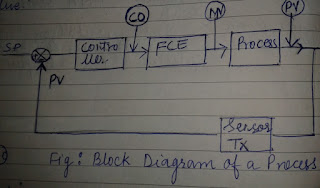 CO
MV
PV
SP
Contro
ller
FCE
Process
PV
Sensor
Tx
Fig: Block Diagram of a Process